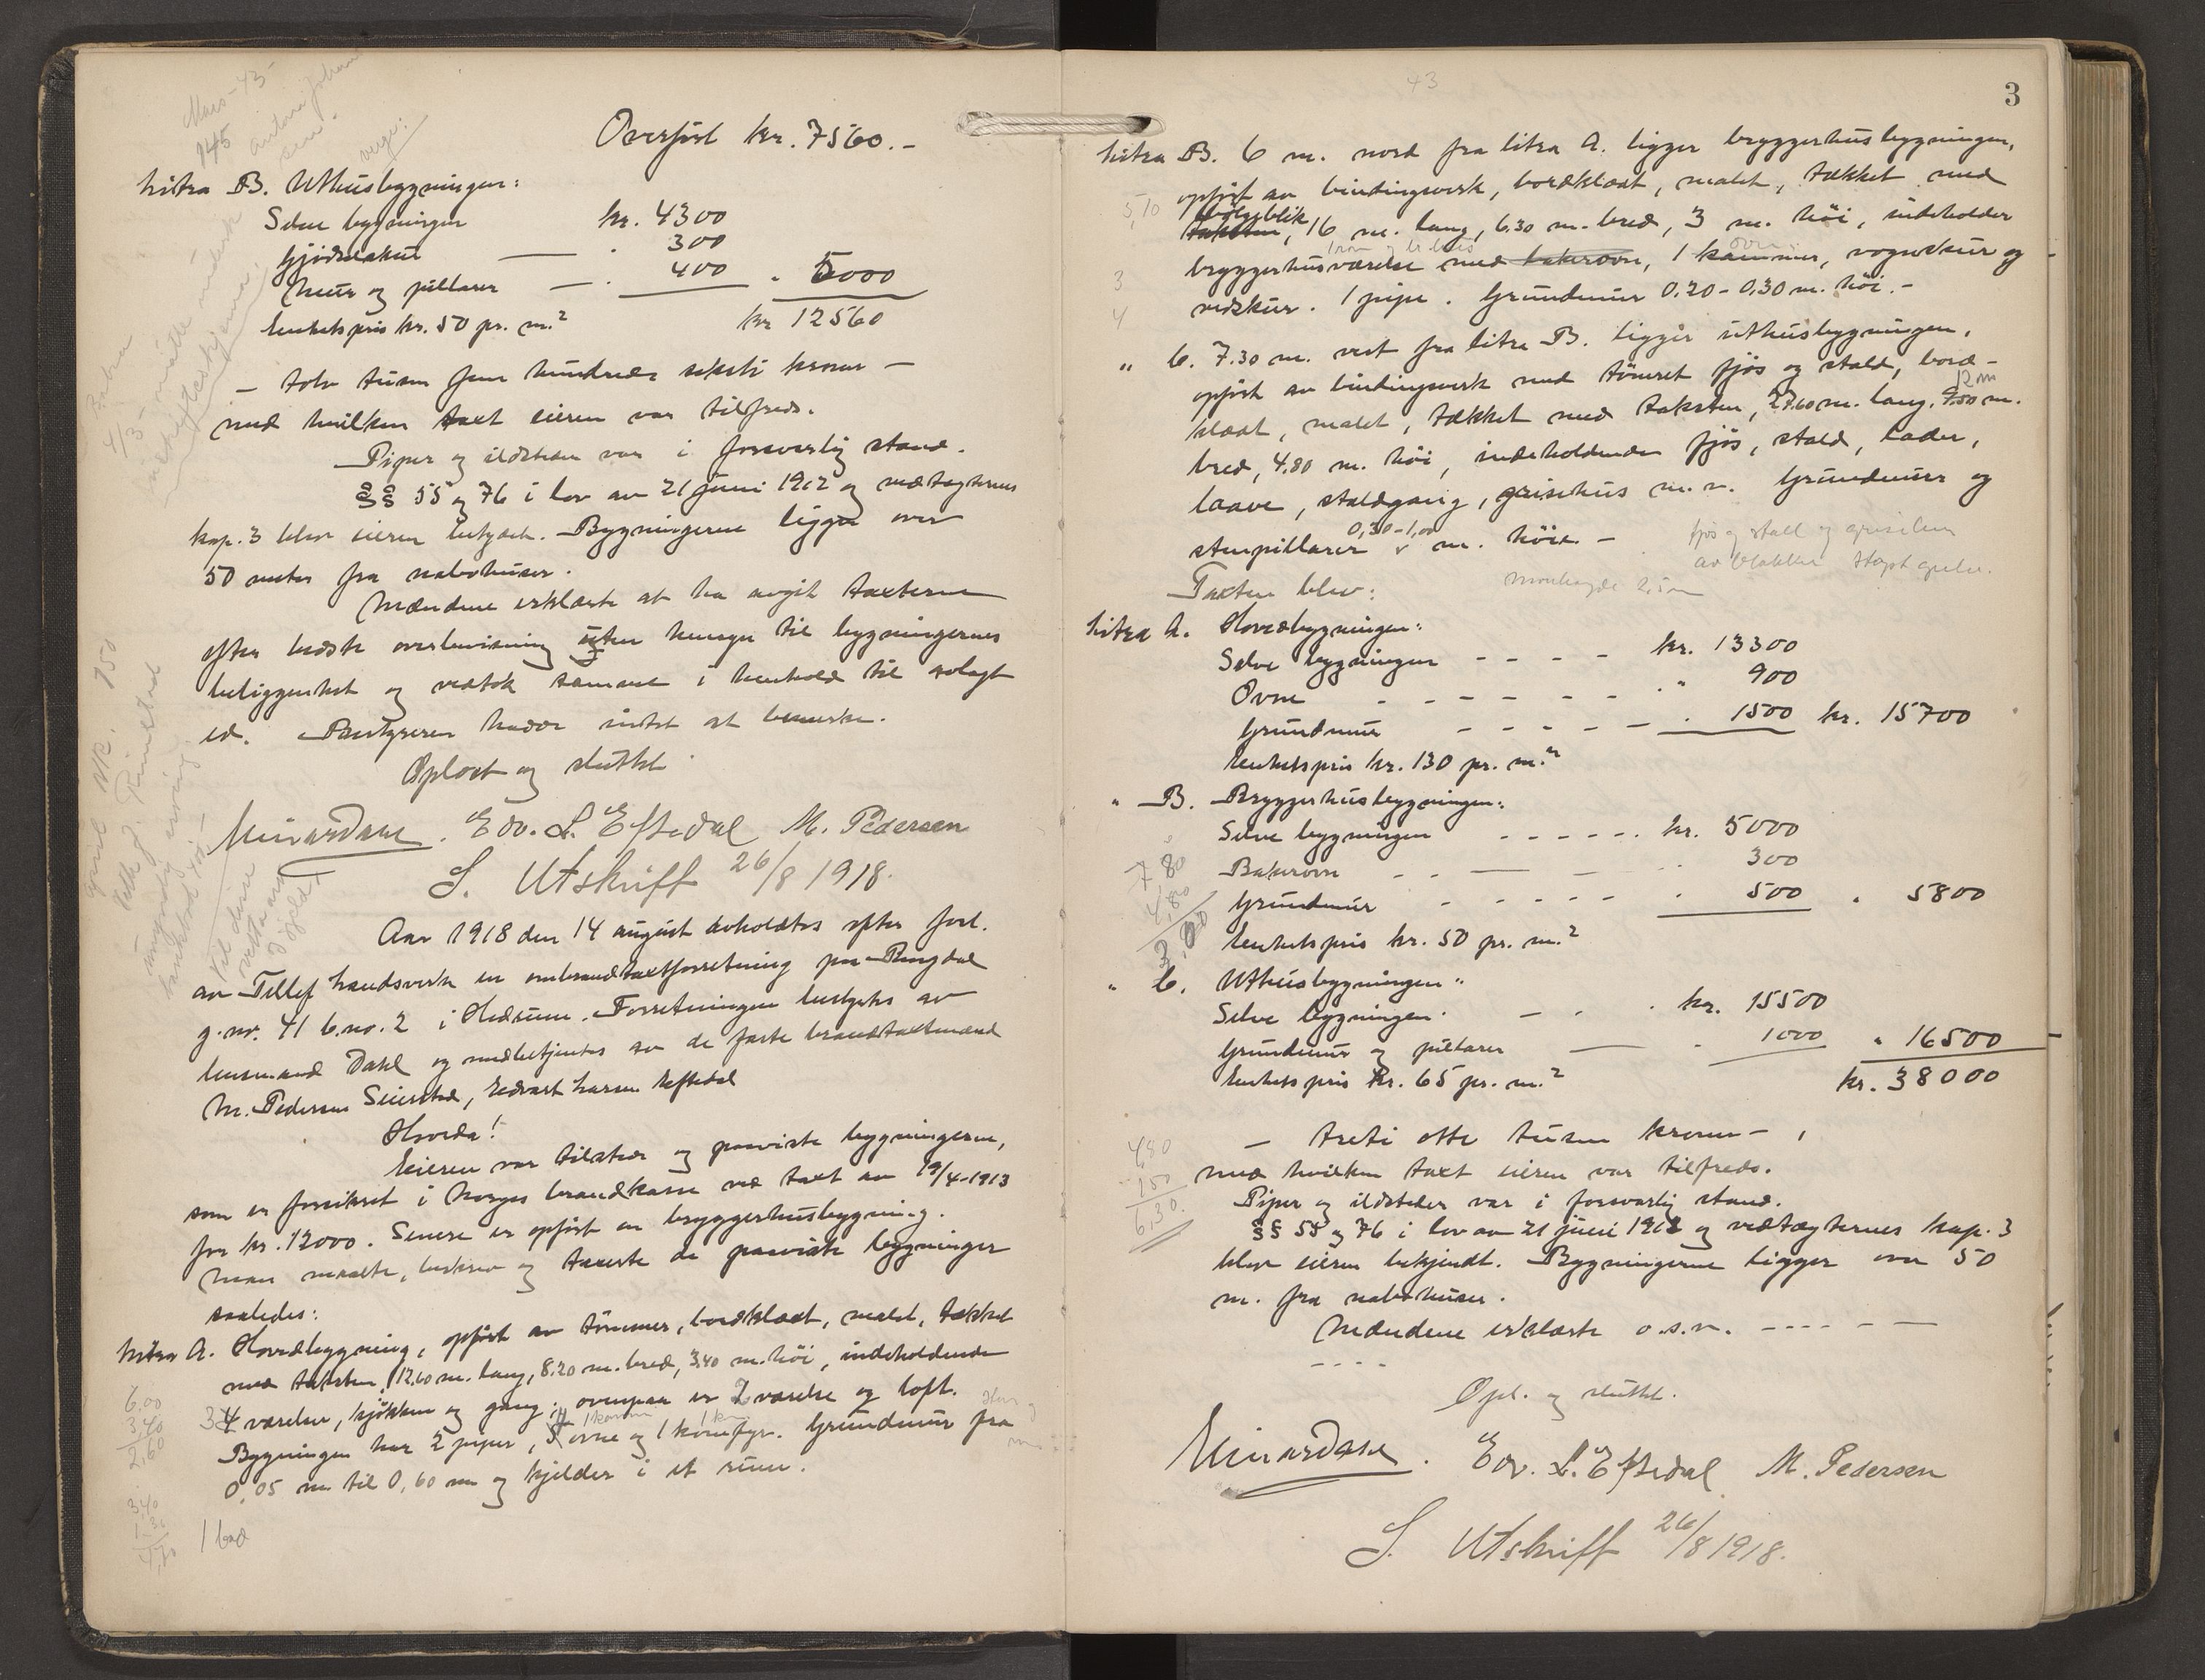 Overført kr. 7560.-
Litra B. Uthusbygningen:
Selve bygningen kr. 4300
Gjødselskut — . 300
Mur og pillarer — . 400 " 5000
Enhetspris kr. 50 pr. m.² kr 12560
— tolv tusen fem hundrede seksti kroner —
med hvilken taxt eieren var tilfreds.
Piper og ildsteder var i forsvarlig stand.
§§ 55 og 76 i lov av 21 juni 1912 og vedtægternes
kap. 3 blev eieren bekjendt. Bygningerne ligger over
50 meter fra nabohuser.
Mændene erklærte at ha avgit taxterne
efter bedste overbevisning uten hensyn til bygningernes
beliggenhet og vedtok samme i henhold til avlagt
ed. Bestyreren hadde intet at bemerke.
Oplæst og sluttet.
Einar Dahl. Edv. L. Eftedal M. Pedersen
S. Utskrift 26/8 1918.
Aar 1918 den 14 august avholdtes efter forl.
av Tellef Landsverk en ombrandtaxtforretning paa Ringdal
g.nr. 41 b.nr. 2 i Hedrum. Forretningen bestyrtes av
lensmand Dahl og medbetjentes av de faste brandtaxtmænd
M. Pedersen Seierstad, Edvart Larsen Eftedal
Hvorda!
Eieren var tilstede og paaviste bygningerne,
som er forsikret i Norges brandkasse ved taxt av 19/4-1913
for kr. 12000. Senere er opført en bryggerhusbygning.
Man maalte, beskrev og taxerte de paaviste bygninger
saaledes:
Litra A. Hovedbygning, opført av tømmer, bordklædt, malet, tækket
med taksten, 12,60 m. lang, 8.20 m. bred, 3,40 m. høi, indeholdende
4 værelser, kjøkken og gang; ovenpaa er 2 værelse og loft.
Bygningen har 2 piper, ovne og 1 komfyr. Grundmur fra
0,05 m til 0,60 m og kjelder i et rum.
1 bad
6,00
3,40
2,60
43
3
Litra B. 6 m. nord fra litra A. ligger bryggerhusbygningen,
opført av bindingsverk, bordklædt, malet, tækket med
bølgeblik
taksten, 16 m. lang, 6.30 m. bred, 3 m. høi, indeholder
bryggerhusværelse med bakerovn, 1 kammer, vognskur og
vedskur. 1 pipe. Grundmur 0,20 - 0,30 m. høi. -
" C. 7.30 m. vest fra litra B. ligger uthusbygningen,
opført av bindingsverk med tømret fjøs og stald, bord-
12 m
klædt, malet, tækket med taksten, 27,60 m. lang, 9,50 m.
bred, 4,80 m. høi, indeholdende fjøs, stald, lader,
laave, staldgang, grisehus m.v. Grundmur og
0,30-1,00
stenpillarer m. høie. -
fjøs og stall og grisehus
Taxten blev:
Litra A. Hovedbygningen:
Selve bygningen - - - - kr. 13300
Ovne - - - - - - . " 900
Grundmur - - - - - . 1500 kr. 15700
Enhetspris kr. 130 pr. m.²
" B. Bryggerhusbygningen:
Selve bygningen - - - - - - kr. 5000
Bakerovn - - — — . 300
Grundmur - - - - - . 500 . 5800
Enhetspris kr. 50 pr. m.²
" C. Uthusbygningen "
Selve bygningen. — . . kr. 15500
Grundmur og pillarer — . 1000 " 16500
Enhetspris kr. 65 pr. m.² kr. 38000
— treti otte tusen kroner — ,
med hvilken taxt eieren var tilfreds.
Piper og ildsteder var i forsvarlig stand.
§§ 55 og 76 i lov av 21 juni 1912 og vedtægternes kap. 3
blev eieren bekjendt. Bygningerne ligger over 50
m. fra nabohuser.
Mændene erklærte o.s.v. - - - - - —
- - - -
Opl. og sluttet.
Einar Dahl. Edv. L. Eftedal M. Pedersen
S. Utskrift 26/8 1918.
4,80
1,50
6,30